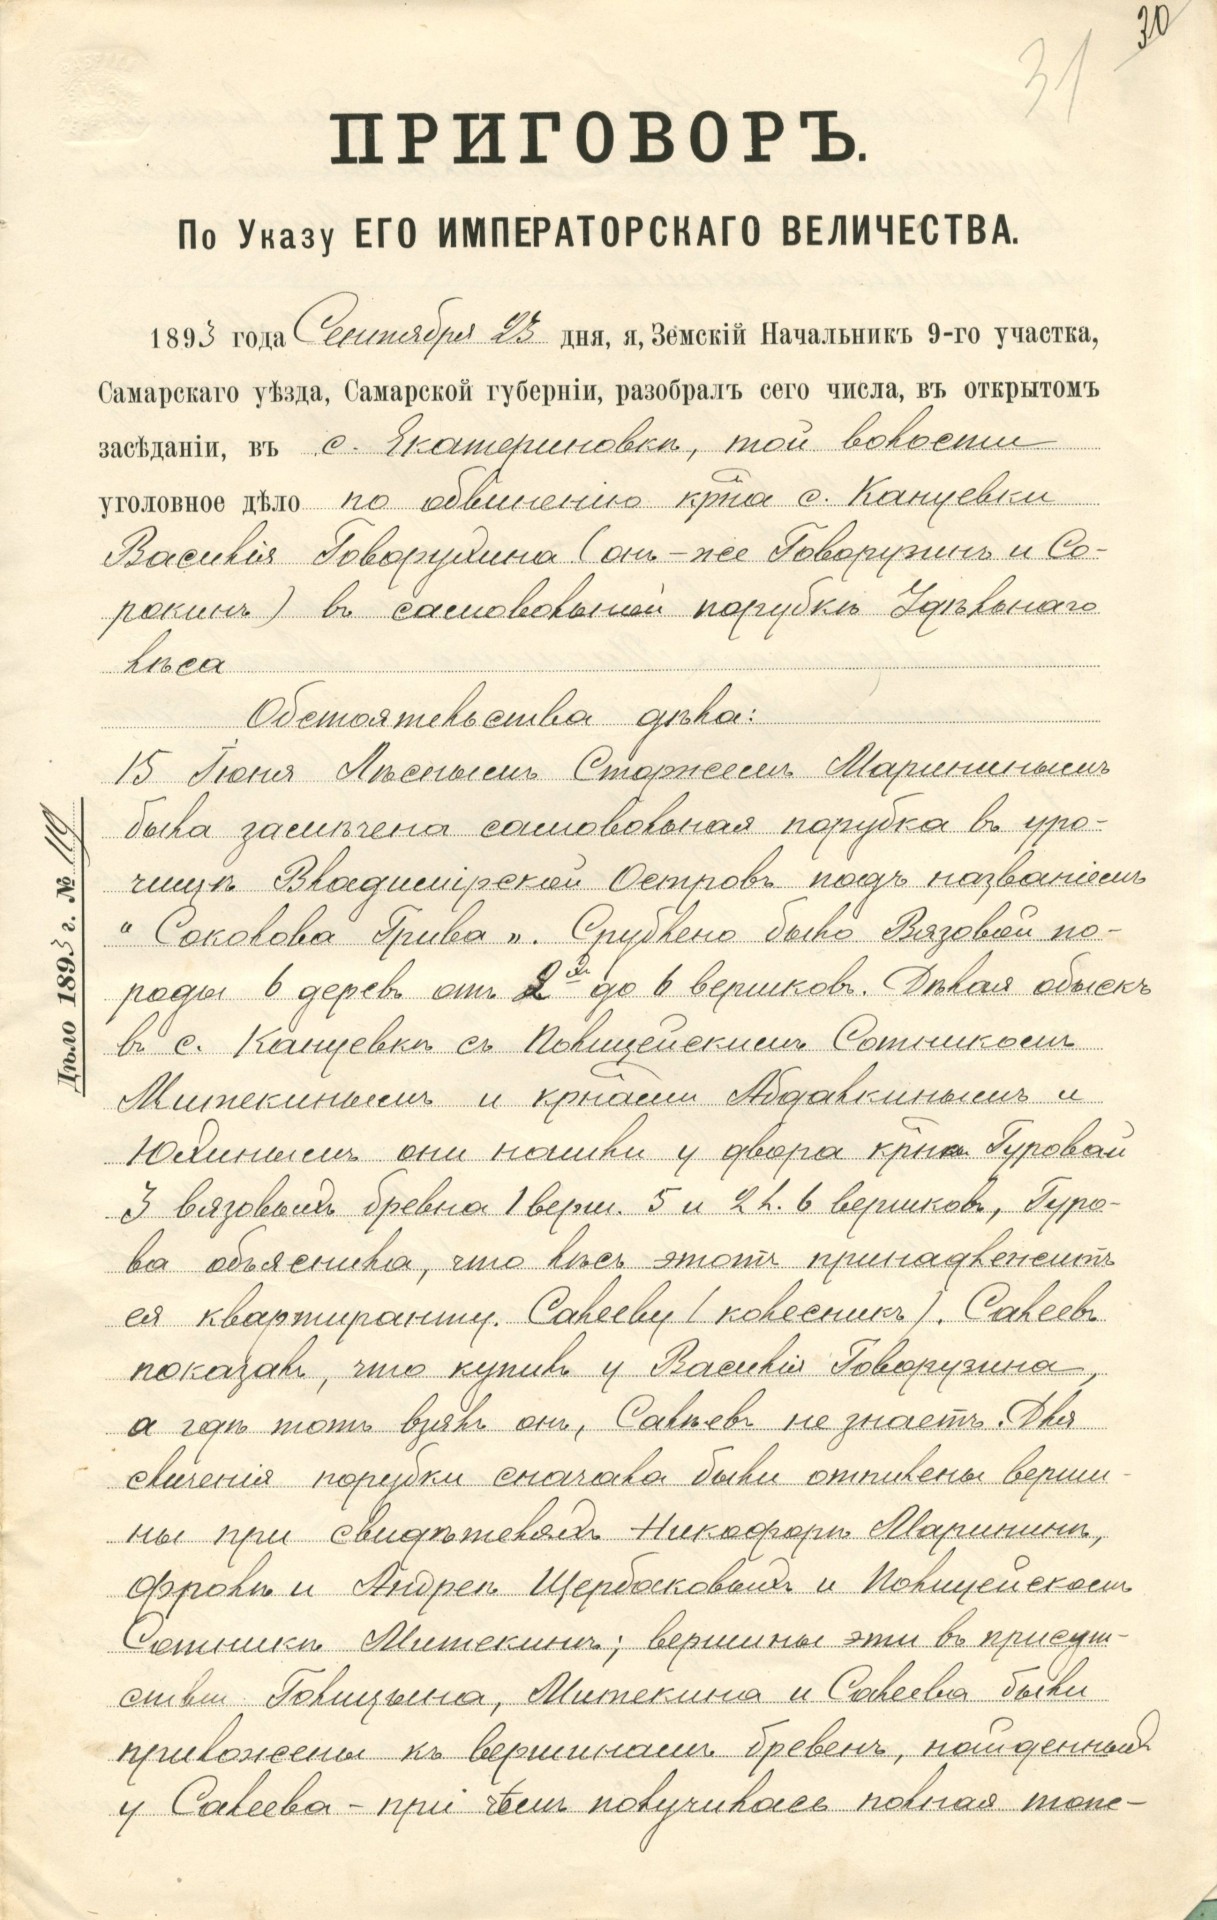 30
31
ПРИГОВОРЪ.
По Указу ЕГО ИМПЕРАТОРСКАГО ВЕЛИЧЕСТВА.
1893 года Сентября 23 дня, я, Земскій Начальникъ 9-го участка,
Самарскаго уѣзда, Самарской губерніи, разобралъ сего числа, въ открытомъ
засѣданіи, въ с. Екатериновкѣ, той волости
уголовное дѣло по обвиненію кр-на с. Кануевки
Василія Говорухина (онъ-же Говорузинъ и Со-
рокинъ) въ самовольной порубкѣ Удѣльнаго
лѣса
Обстоятельства дѣла:
15 Іюня Лѣснымъ Сторжемъ Марининымъ
была замѣчена самовольная порубка въ уро-
чищѣ Владимірской Островъ подъ названіемъ
"Соколова Грива". Срублено было Вязовой по-
роды 6 деревъ отъ 2-хъ до 6 вершковъ. Дѣлая обыскъ
въ с. Кануевкѣ съ Полицейскимъ Сотникомъ
Митекинымъ и кр-нами Абдалкинымъ и
Юдинымъ они нашли у двора кр-нки Гуровой
3 вязовыхъ бревна 1 верш. 5 и 2 б. 6 вершковъ, Гуро-
ва объяснила, что лѣсъ этотъ принадлежитъ
ея квартиранту. Савееву (колесникъ). Савеевъ
показалъ, что купилъ у Василія Говорузина,
а гдѣ тотъ взялъ онъ, Савѣевъ не знаетъ. Для
сличенія порубки сначала были отпилены верши-
ны при свидѣтеляхъ Никофорѣ Марининѣ,
Фролѣ и Андреѣ Щербаковыхъ и Полицейскомъ
Сотникѣ Митекинѣ; вершины эти въ присут-
ствіи Голицына, Митекина и Савеева были
приложены къ вершинамъ бревенъ, найденныхъ
у Савеева - при чемъ получилась полная тоже-
Дѣло 1893 г. № 119